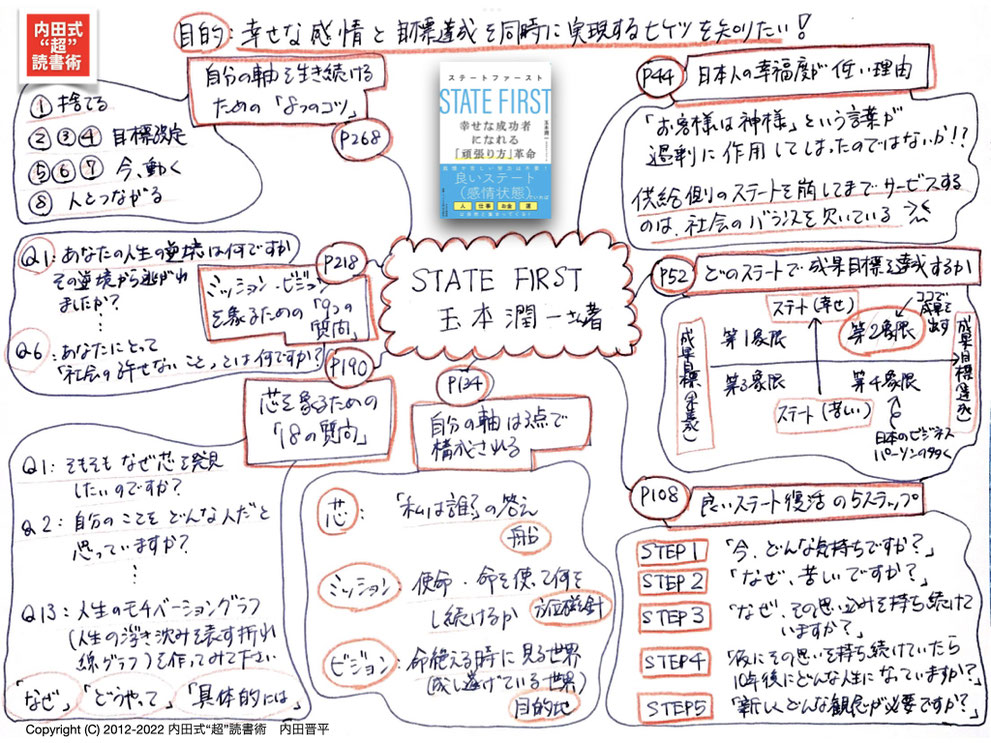 内田式
“超”
読書術
目的：幸せな感情と目標達成を同時に実現するヒケツを知りたい！
自分の軸を生き続ける
ための「8つのコツ」
P268
① 捨てる
② ③ ④ 目標設定
⑤ ⑥ ⑦ 今、動く
⑧ 人とつながる
ステートファースト
STATE FIRST
幸せな成功者
になれる
「頑張り方」革命
良いステート
（感情状態）
人 仕事 お金 運
P44
日本人の幸福度が低い理由
「お客様は神様」という言葉が
過剰に作用してしまったのではないか!?
供給側のステートを崩してまでサービスする
のは、社会のバランスを欠いている
STATE FIRST
玉本潤一著
P218
ミッション・ビジョン
を象るための「9つの
質問」
Q1：あなたの人生の逆境は何ですか
その逆境から逃がれ
ましたか？
⋮
Q6：あなたにとって
「社会の許せないこと」とは何ですか？
P52
どのステートで成果目標を達成するか！
ステート（幸せ）
ココで
成果を
出す
第1象限
第2象限
成果目標（未達）
成果目標（達成）
第3象限
第4象限
ステート（苦しい）
日本のビジネス
パーソンの多く
P190
芯を象るための
「18の質問」
Q1：そもそもなぜ芯を発見
したいのですか？
Q2：自分のことをどんな人だと
思っていますか？
⋮
Q13：人生のモチベーショングラフ
（人生の浮き沈みを表す折れ
線グラフ）を作ってみて下さい
「なぜ」「どうやって」「具体的には」
P134
自分の軸は3点で
構成される
芯：「私は誰？」の答え
船
ミッション：使命・命を使って何を
し続けるか 羅針盤
ビジョン：命絶える時に見る世界
（成し遂げている世界）
目的地
P108
良いステート復活の5ステップ
STEP1 「今、どんな気持ちですか？」
STEP2 「なぜ、苦しいですか？」
STEP3 「なぜ、その思い込みを持ち続けて
いますか？」
STEP4 「仮にその思いを持ち続けていたら
10年後にどんな人生になっていますか？」
STEP5 「新しくどんな観念が必要ですか？」
Copyright (C) 2012-2022 内田式“超”読書術 内田晋平